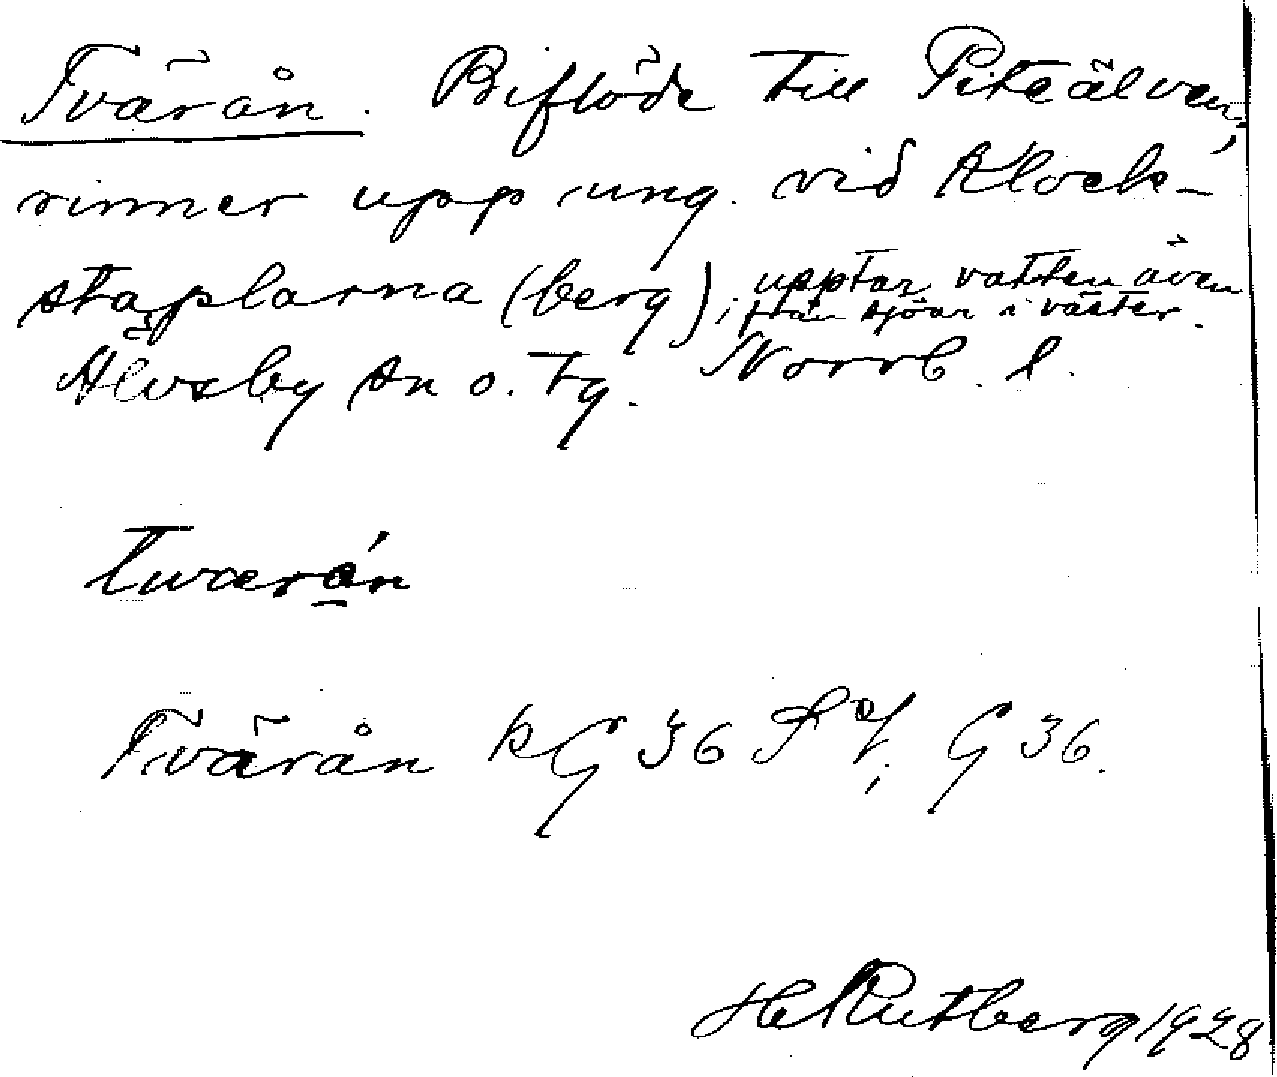 Tvärån. Biflöde till Piteälven,
rinner upp ung. vid Klock-
staplarna (berg); upptar vatten även
från sjöar i väster.
Älvsby sn o. tg. Norrb. l.
Tværån
Tvärån kG 36 G 36.
H Rutberg 1928